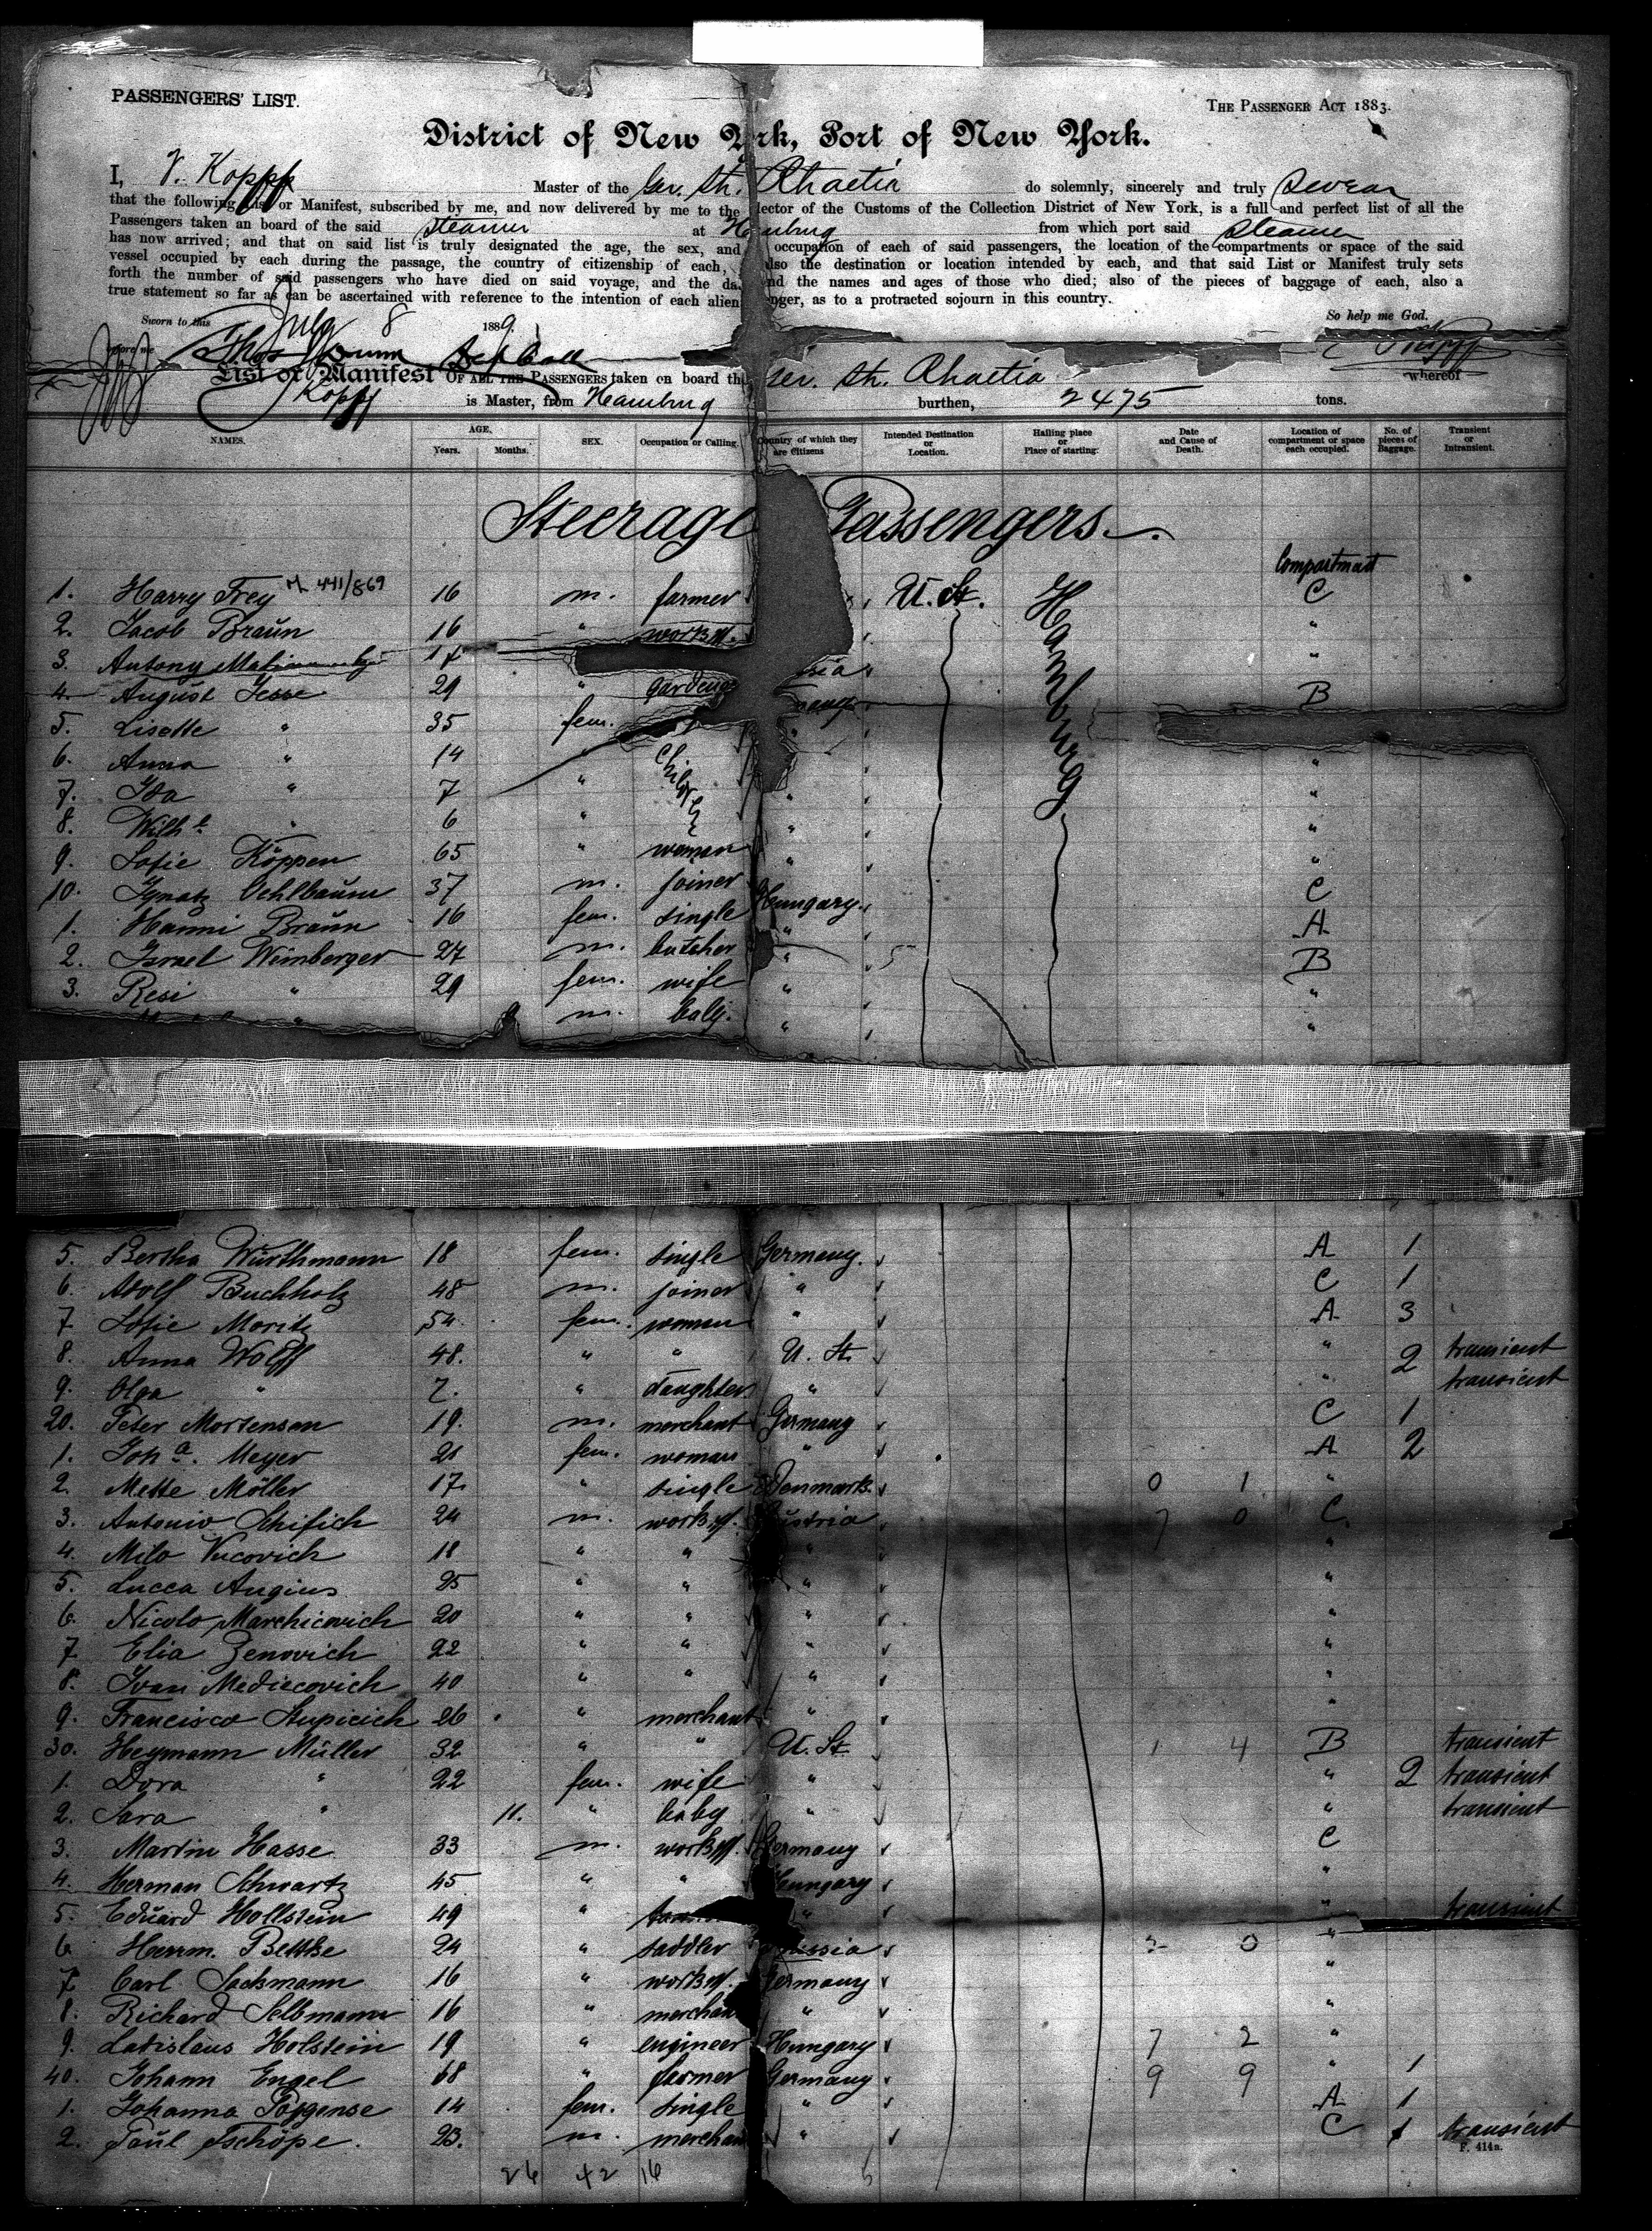 PASSENGERS' LIST.
THE PASSENGER ACT 1883.
District of New York, Port of New York.
I, V. Kopff Master of the Ger. Str. Rhaetia do solemnly, sincerely and truly swear
that the following List or Manifest, subscribed by me, and now delivered by me to the lector of the Customs of the Collection District of New York, is a full and perfect list of all the
Passengers taken an board of the said steamer at Hamburg from which port said steamer
has now arrived; and that on said list is truly designated the age, the sex, and occupation of each of said passengers, the location of the compartments or space of the said
vessel occupied by each during the passage, the country of citizenship of each, also the destination or location intended by each, and that said List or Manifest truly sets
forth the number of said passengers who have died on said voyage, and the da nd the names and ages of those who died; also of the pieces of baggage of each, also a
true statement so far as can be ascertained with reference to the intention of each alien nger, as to a protracted sojourn in this country.
Sworn to this July 8 1889 So help me God.
before me Thos Kopff
List or Manifest OF ALL THE PASSENGERS taken on board the Ger. Str. Rhaetia whereof
Kopff is Master, from Hamburg burthen, 2475 tons.
NAMES. AGE. Years. Months. SEX. Occupation or Calling. Country of which they are Citizens Intended Destination or Location. Hailing place or Place of starting. Date and Cause of Death. Location of compartment or space each occupied. No. of pieces of Baggage. Transient or Intransient.
Steerage Passengers.
Compartment
1. Harry Frey M 441/869 16 m. farmer U. St. Hamburg C
2. Jacob Braun 16 " workm. "
3. Antony 17 ria "
4. August Jesse 29 " gardener many B
5. Lisette " 35 fem. "
6. Anna " 14 " children " "
7. Ida " 7 " " "
8. Wilhe " 6 " " "
9. Sofie Köppen 65 " woman " "
10. Ignatz Oehlbaum 37 m. joiner Hungary C
1. Hanni Braun 16 fem. single " A
2. Israel Wimberger 27 m. butcher " B
3. Resi " 29 fem. wife " "
" m. baby. " "
5. Bertha Würthmann 18 fem. single Germany. A 1
6. Adolf Buchholz 48 m. joiner " C 1
7 Sofie Moritz 54 fem. woman " A 3
8. Anna Wolff 48. " " U. St. " 2 transient
9. Olga " 7. " daughter " " transient
20. Peter Mortensen 19. m. merchant Germany C 1
1. Joha. Meyer 21 fem. woman " A 2
2. Mette Möller 17 " single Denmark. 0 1 "
3. Antonio Schifich 24 m. workm. Austria 7 0 C.
4. Milo Vucovich 18 " " " "
5. Lucca Angius 25 " " " "
6. Nicolo Marchicovich 20 " " " "
7 Elia Zenovich 22 " " " "
8. Ivan Mediecovich 40 " " " "
9. Francisco Stupicich 26 " merchant " "
30. Heymann Müller 32 " " U. St. 1 4 B transient
1. Dora " 22 fem. wife " " 2 transient
2. Sara " 11. " baby " " transient
3. Martin Hasse 33 m. workm. Germany C
4. Herman Schwartz 45 " " Hungary "
5. Eduard Hollstein 49 " " " transient
6 Herrm. Bethke 24 " saddler Russia 2 0 "
7 Carl Sachsmann 16 " workm. Germany "
8. Richard Selbmann 16 " merchant " "
9. Ladislaus Holstein 19 " engineer Hungary 7 2 "
40. Johann Engel 68 " farmer Germany 9 9 " 1
1. Johanna Poggense 14 fem. single " A 1
2. Paul Tschöpe. 23. m. merchant " C 1 transient
F. 414a.
26 42 16